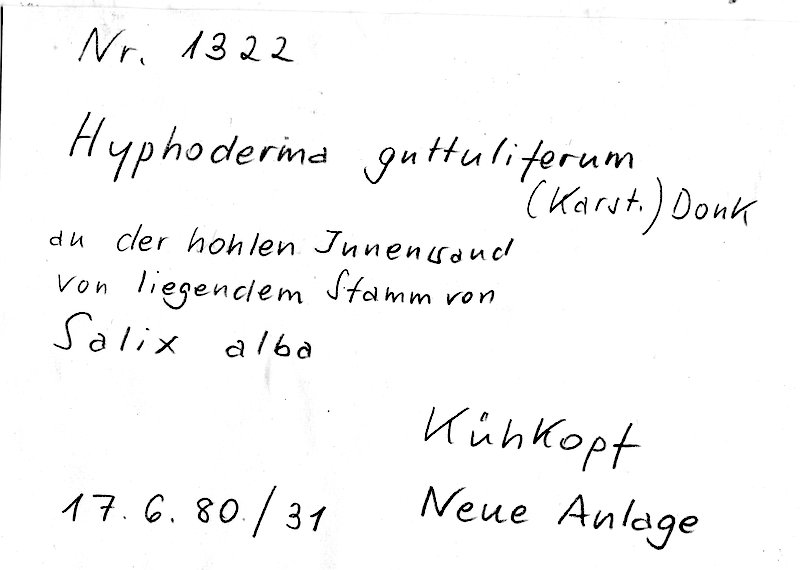 Nr. 1322
Hyphoderma guttuliferum
(Karst.) Donk
an der hohlen Innenwand
von liegendem Stamm von
Salix alba
Kühkopf
17. 6. 80. / 31 Neue Anlage